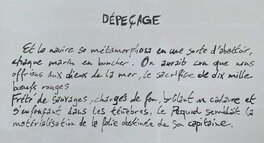 DÉPEÇAGE
Et le navire se métamorphosa en une sorte d'abattoir,
chaque marin en boucher. On aurait cru que nous
offrions aux dieux de la mer, le sacrifice de dix mille
bœufs rouges
Frété de sauvages, chargés de feu, brûlant un cadavre et
s'enfonçant dans les ténèbres, le Péquod semblait la
matérialisation de la folie obstinée de son capitaine.